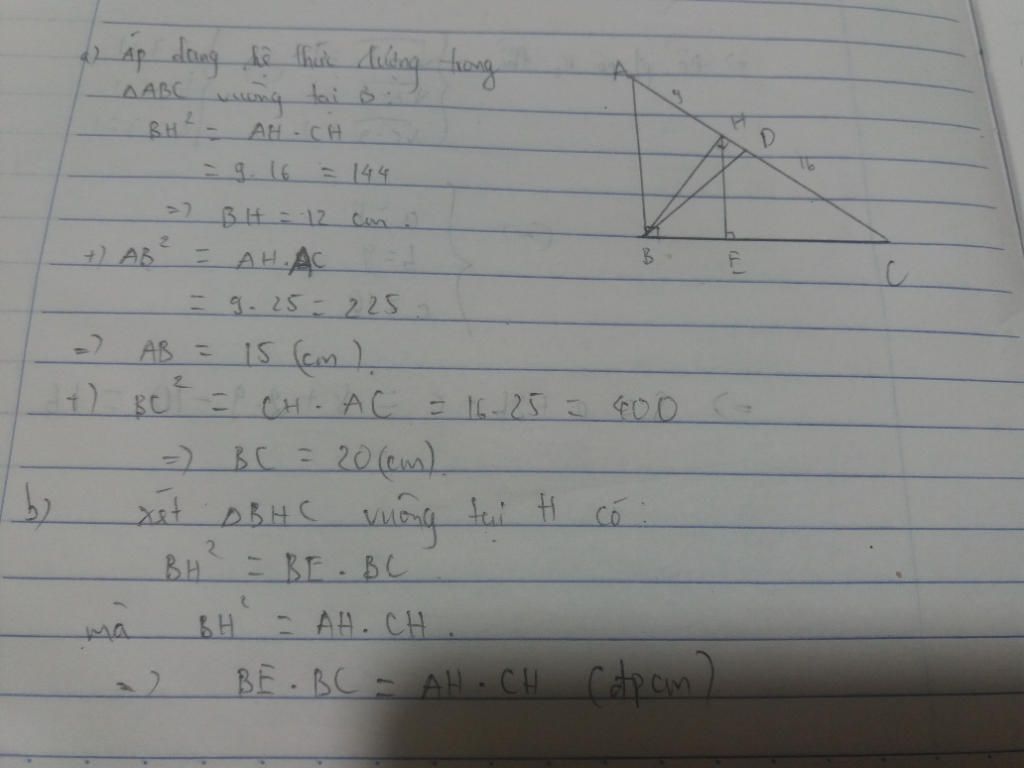 a) Áp dụng hệ thức lượng trong
ΔABC vuông tại B:
BH² = AH.CH
= 9.16 = 144
=> BH = 12 cm.
+) AB² = AH.AC
= 9.25 = 225
=> AB = 15 (cm).
+) BC² = CH.AC = 16.25 = 400
=> BC = 20 (cm).
b) xét ΔBHC vuông tại H có:
BH² = BE.BC
mà BH² = AH.CH.
=> BE.BC = AH.CH (đpcm)
A
9
H
D
16
B
E
C